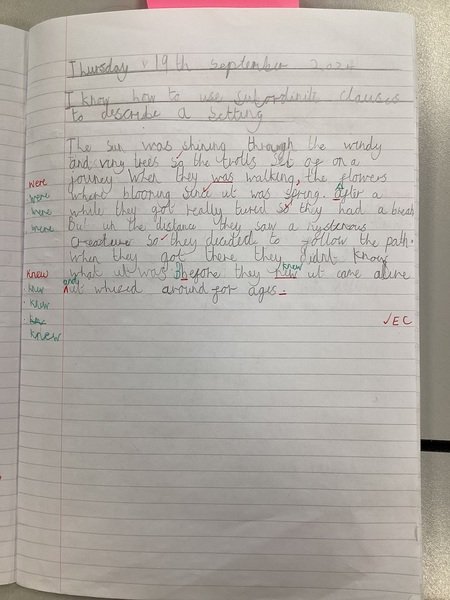 Thursday 19th September 2024
I know how to use subordinite clauses
to describe a setting
The sun was shining through the windy
and viny trees so the trolls set of on a
journey when they was walking, the flowers
were where blooming since it was spring. After a
were while they got really tured so they had a break
were But in the distance they saw a mysterous
were creature so they decided to follow the path.
when they got there they didnt know
knew what it was. Before they new knew it came alive
knew and it whised around for ages.
knew
knew
knew
✓EC